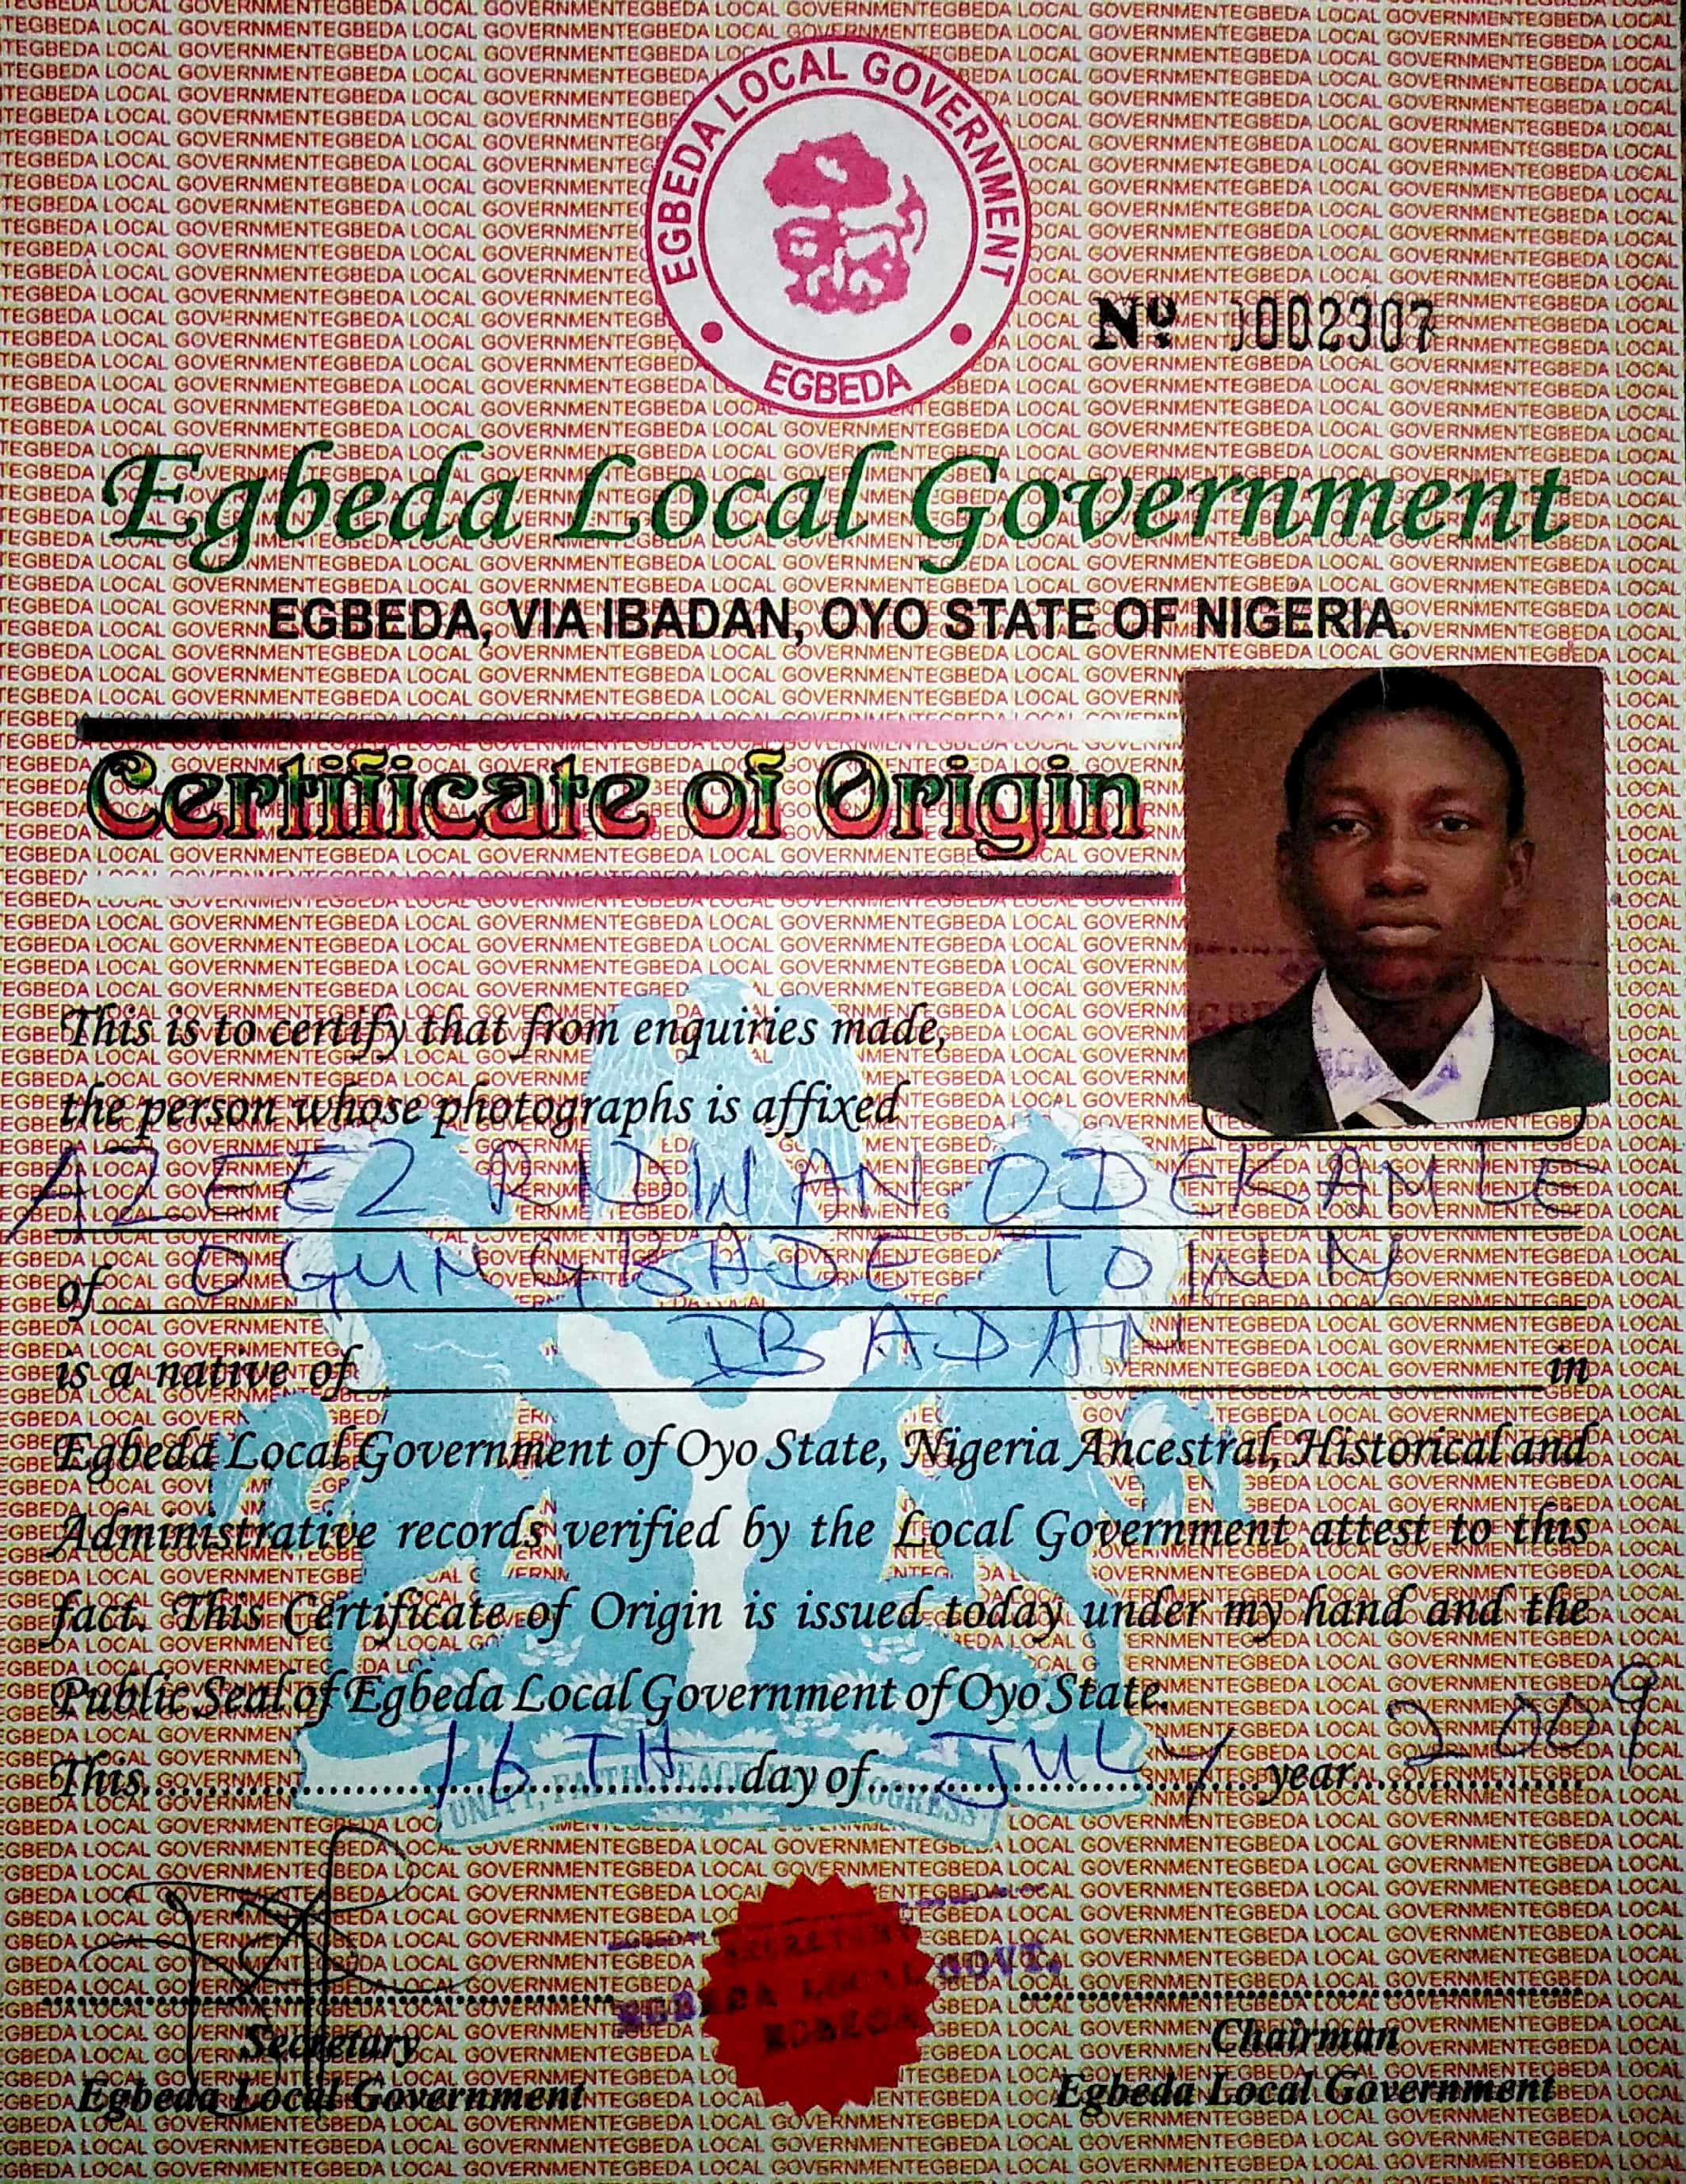 EGBEDA LOCAL GOVERNMENT
EGBEDA
Nº 0002307
Egbeda Local Government
EGBEDA, VIA IBADAN, OYO STATE OF NIGERIA.
Certificate of Origin
This is to certify that from enquiries made,
the person whose photographs is affixed
AZEEZ RIDWAN ODEKAMLE
of OGUNGBADE TOWN
is a native of IBADAN in
Egbeda Local Government of Oyo State, Nigeria Ancestral, Historical and
Administrative records verified by the Local Government attest to this
fact. This Certificate of Origin is issued today under my hand and the
Public Seal of Egbeda Local Government of Oyo State.
This 16TH day of JULY year 2009
UNITY, FAITH, PEACE PROGRESS
SECRETARY
EGBEDA LOCAL GOVT.
EGBEDA
Secretary
Egbeda Local Government
Chairman
Egbeda Local Government